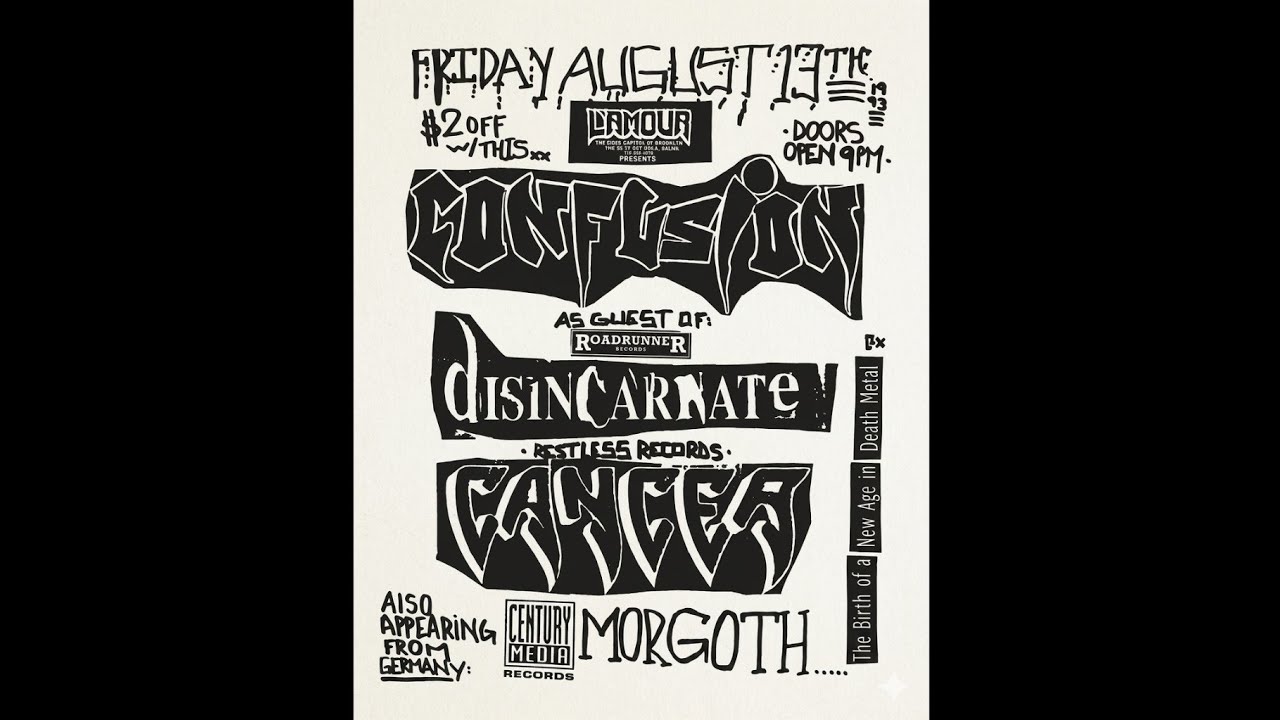 FRIDAY AUGUST 13TH
1993
$2 OFF
W/THIS xx
L'AMOUR
THE EIDES CAPITOL OF BROOKLTN
PRESENTS
·DOORS
OPEN 9PM·
CONFUSION
AS GUEST OF:
ROADRUNNER
RECORDS
dISINCARNATe
·RESTLESS RECORDS·
CANCER
The Birth of a New Age in Death Metal
AlSO
APPEARiNG
FROM
GERMANY:
CENTURY
MEDIA
RECORDS
MORGOTH.....